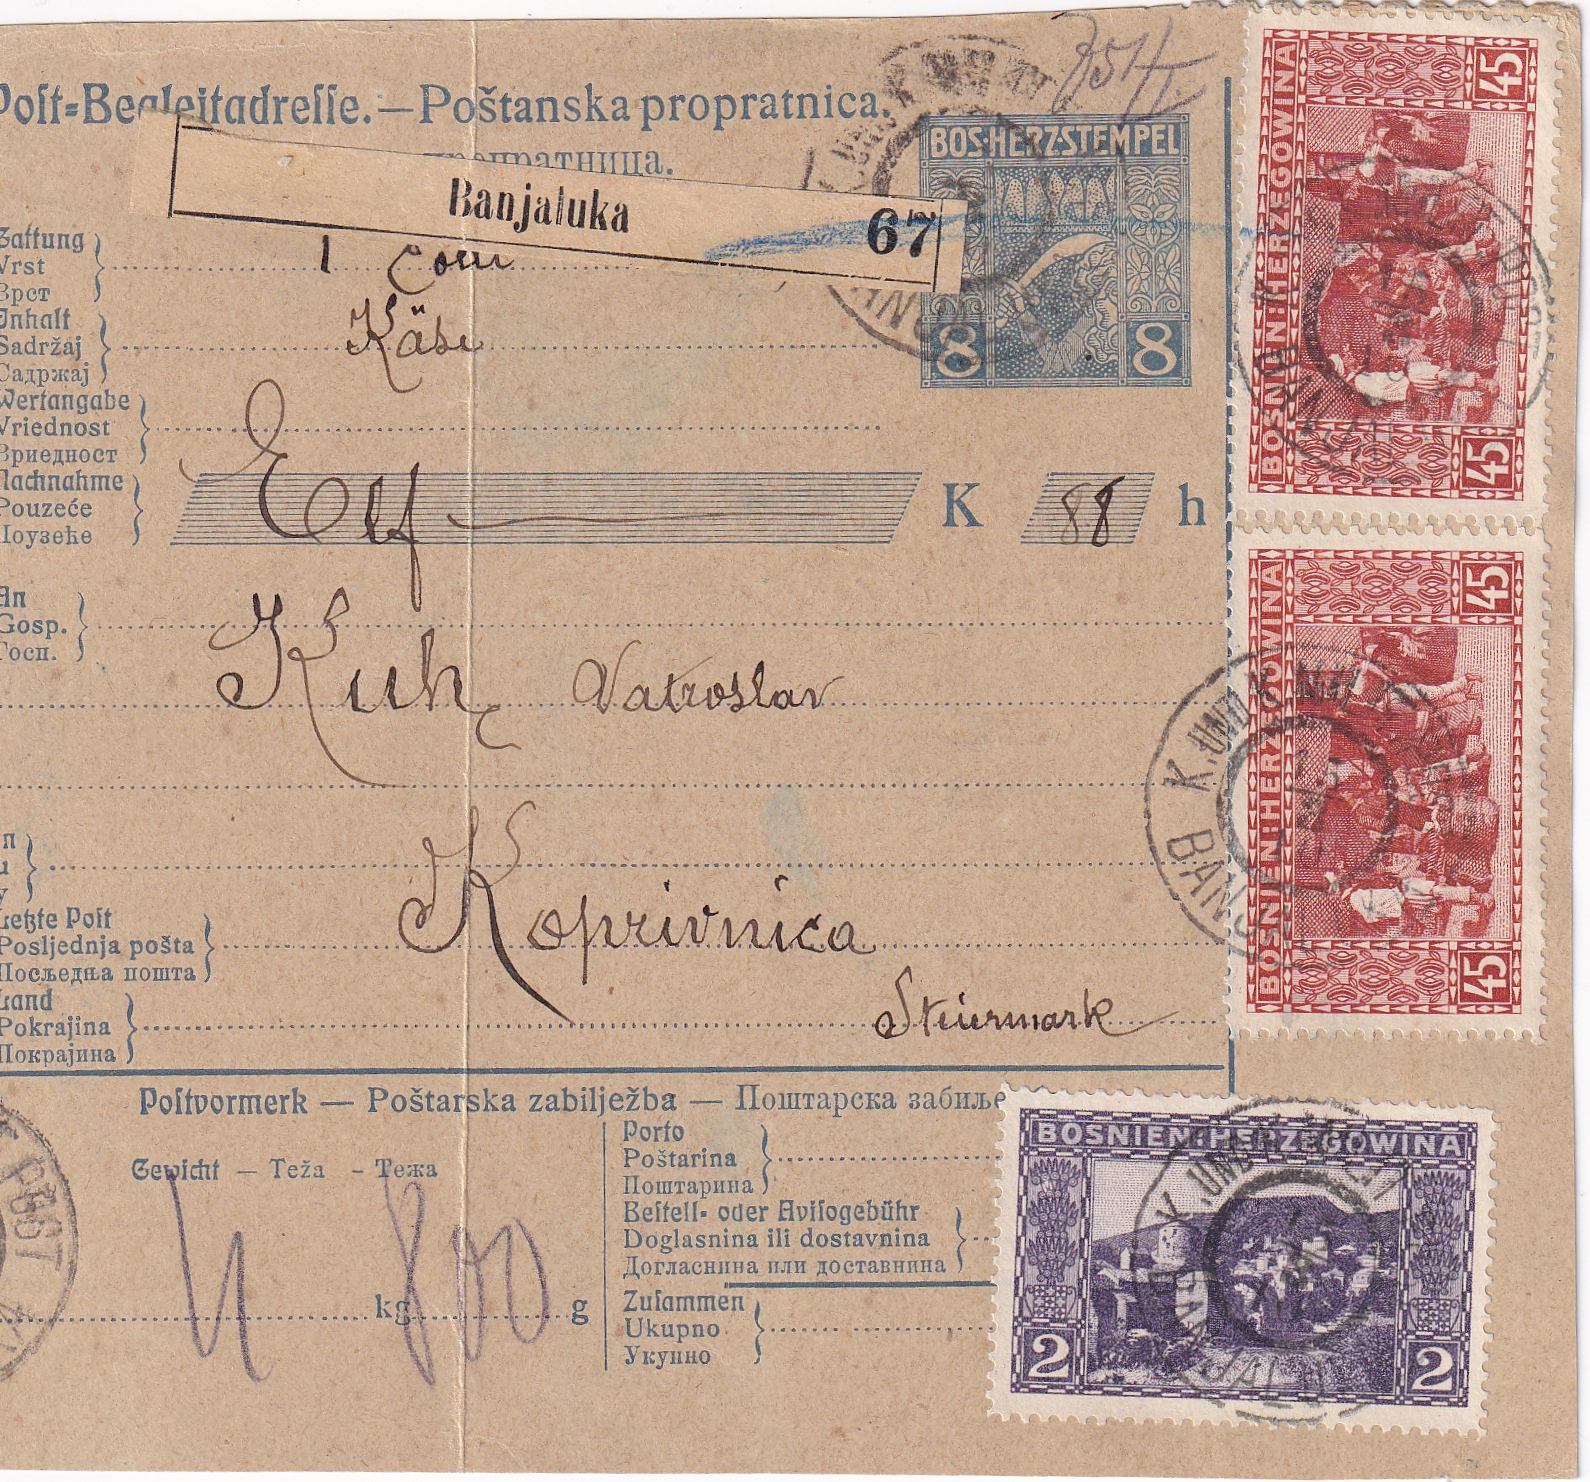 Post=Begleitadresse. — Poštanska propratnica.
пропратница.
BOS·HERZ·STEMPEL
8 8
Banjaluka 67
Gattung
Vrst
Врст
1
Inhalt
Sadržaj
Садржај
Käse
Wertangabe
Vriednost
Вриедност
Nachnahme
Pouzeće
Поузеће
Elf K 88 h
An
Gosp.
Госп.
Kuh Vatroslav
Letzte Post
Posljednja pošta
Посљедња пошта
Koprivnica
Land
Pokrajina
Покрајина
Steiermark
Postvormerk — Poštarska zabilježba — Поштарска забиље
Gewicht — Teža - Тежа
4 kg 800 g
Porto
Poštarina
Поштарина
Bestell= oder Avisogebühr
Doglasnina ili dostavnina
Догласнина или доставнина
Zusammen
Ukupno
Укупно
45 BOSNIEN:HERZEGOWINA 45
45 BOSNIEN:HERZEGOWINA 45
K.UND K. MILIT.
BANJALUKA
BOSNIEN:HERZEGOWINA
2 2
K.UND K. MILIT.
BANJALUKA
POST